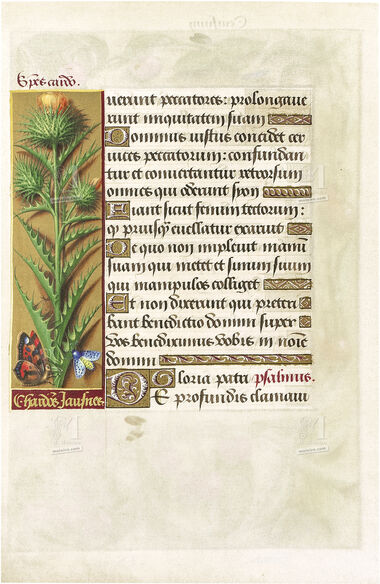 Spes cardo.
uerunt peccatores: prolongaue
runt iniquitatem suam
Dominus iustus concidet cer
uices peccatorum: confundan
tur et conuertantur retrorsum
omnes qui oderunt syon
Fiant sicut fenum tectorum:
q priusq euellatur exaruit
De quo non impleuit manu
suam qui metet et sinum suum
qui manipulos colliget
Et non dixerunt qui preteri
bant benedictio domini super
vos benediximus vobis in noie
domini
Gloria patri psalmus.
De profundis clamaui
Chardos Jausnes
moleiro.com
moleiro.com